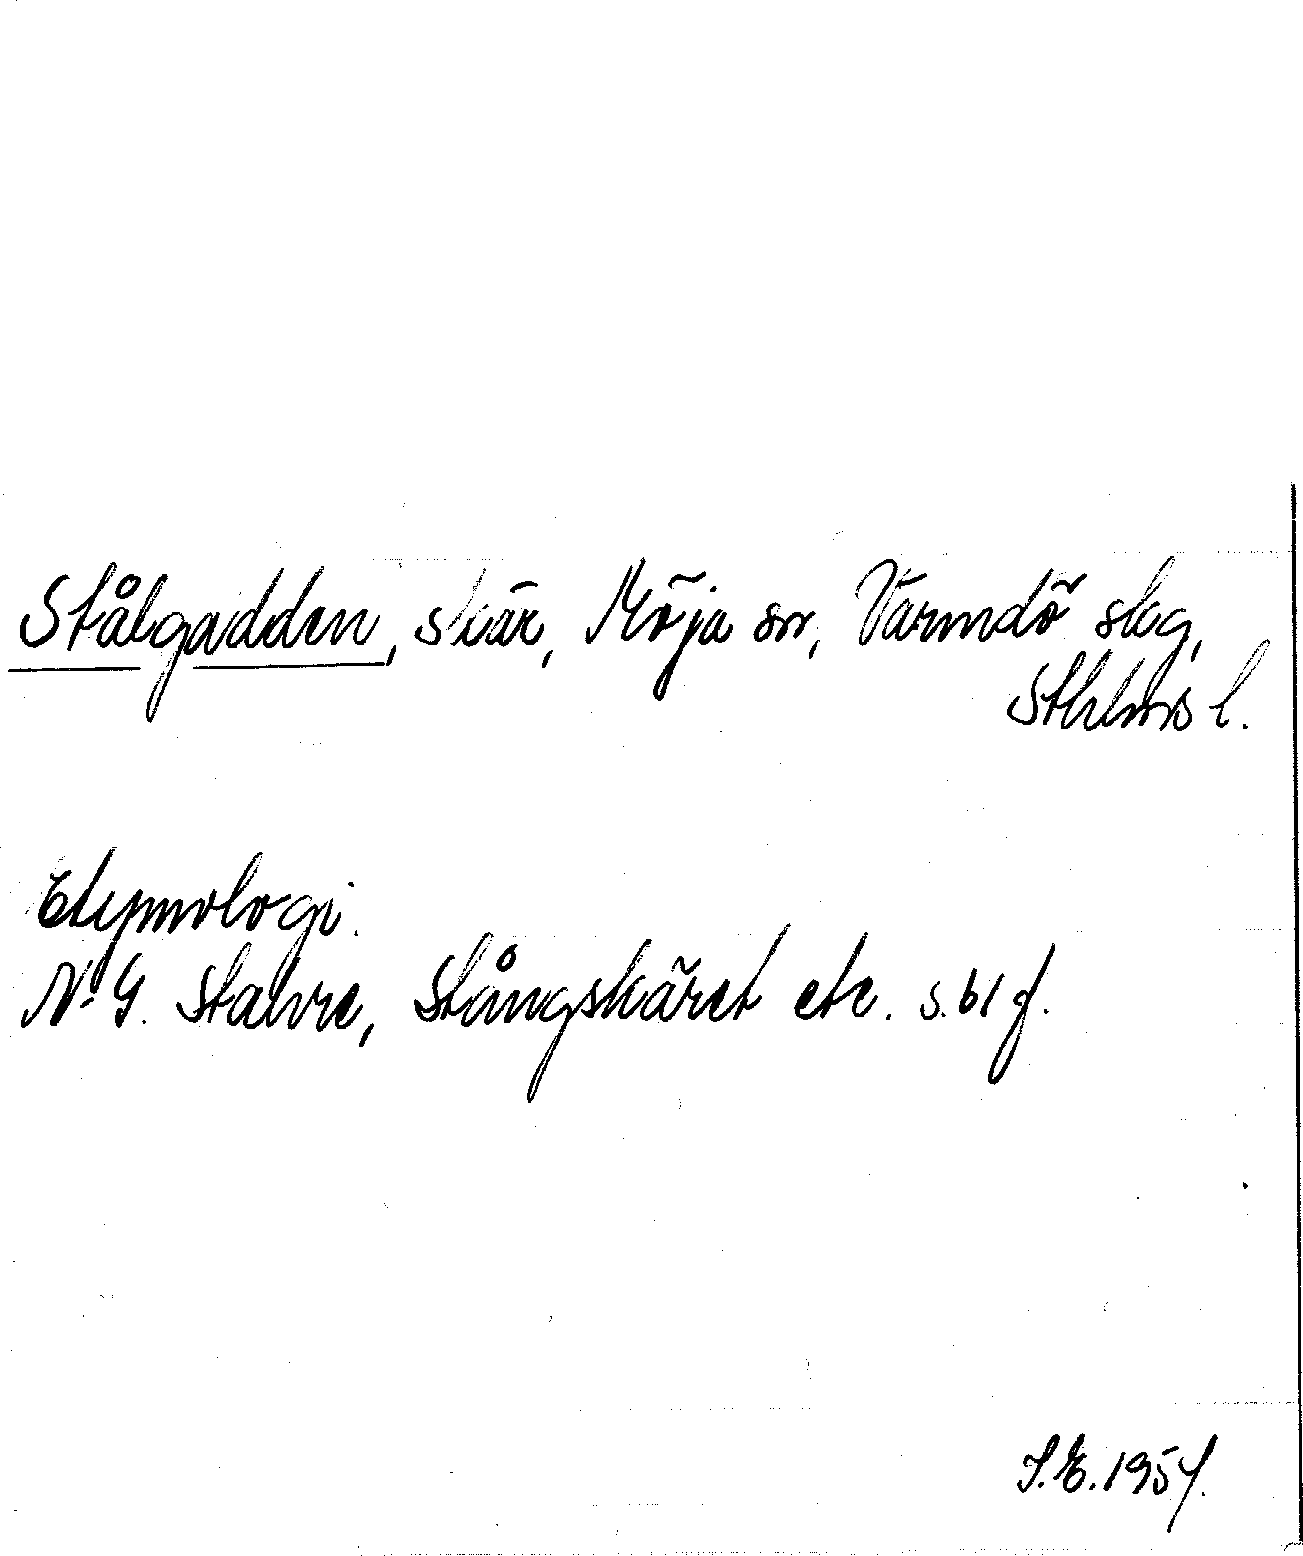 Stålgadden, skär, Möja sn, Värmdö skg,
Sthlms l.
Etymologi.
N. G. Stahre, Stångskäret etc. s. 61 f.
S.E. 1957.